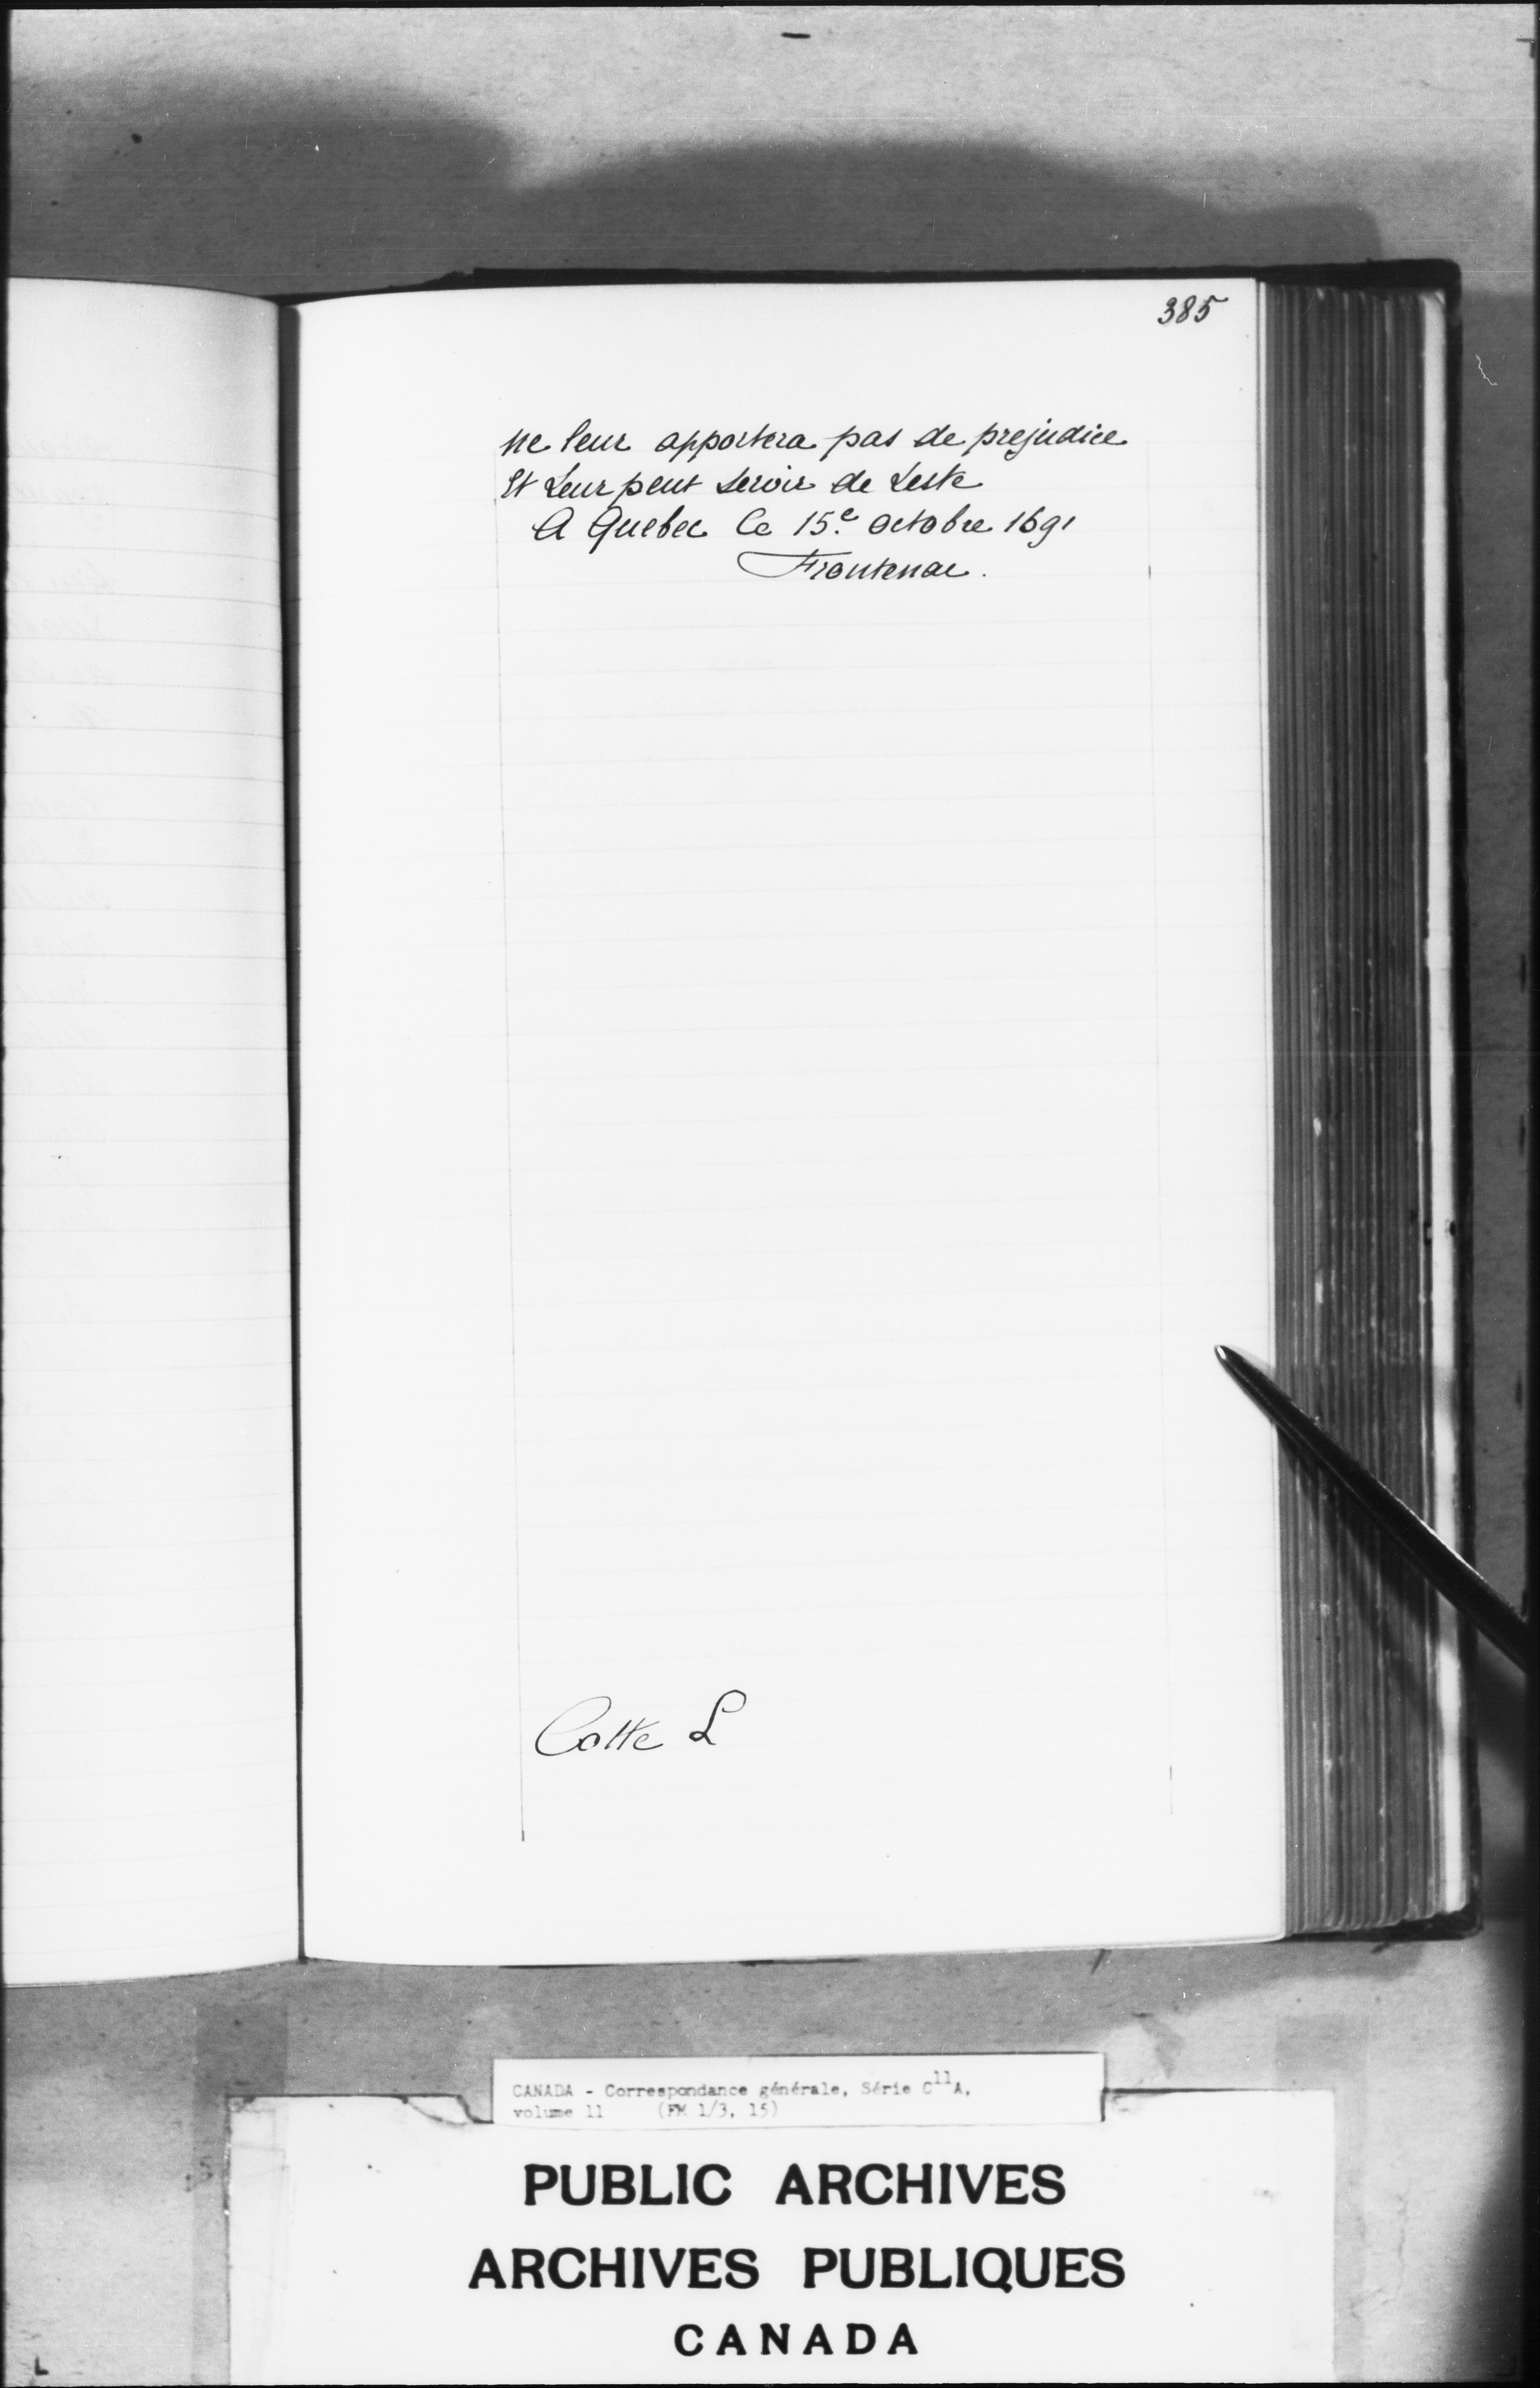 385
ne leur apportera pas de prejudice
Et Leur peut servir de Leste
A Quebec le 15.e octobre 1691
Frontenac.
Cotte L
CANADA - Correspondance générale, Série C11A,
volume 11 (FM 1/3, 15)
PUBLIC ARCHIVES
ARCHIVES PUBLIQUES
CANADA